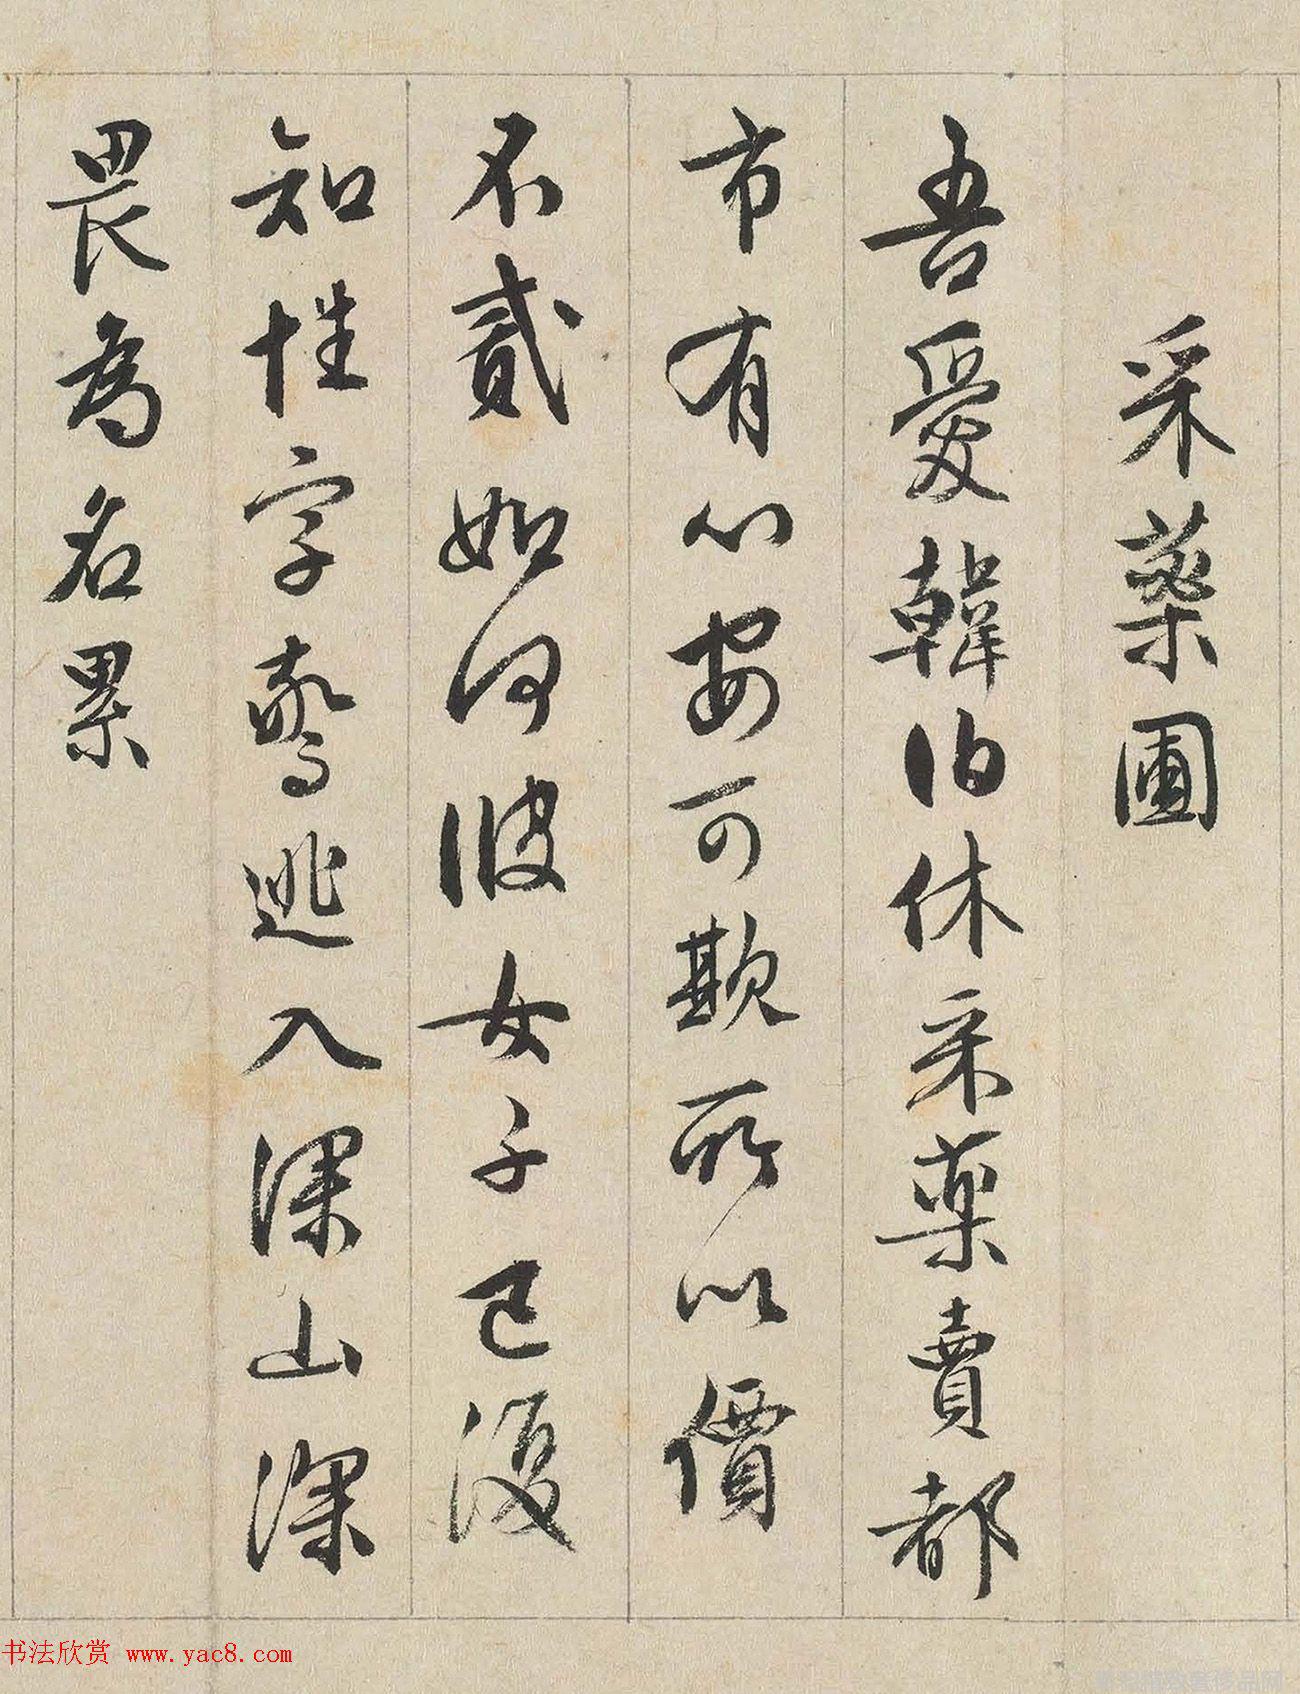 采藥圃
吾愛韓伯休采藥賣都
市有心安可欺所以價
不貳如何彼女子已復
知性字驚逃入深山深
畏為名累
书法欣赏 www.yac8.com